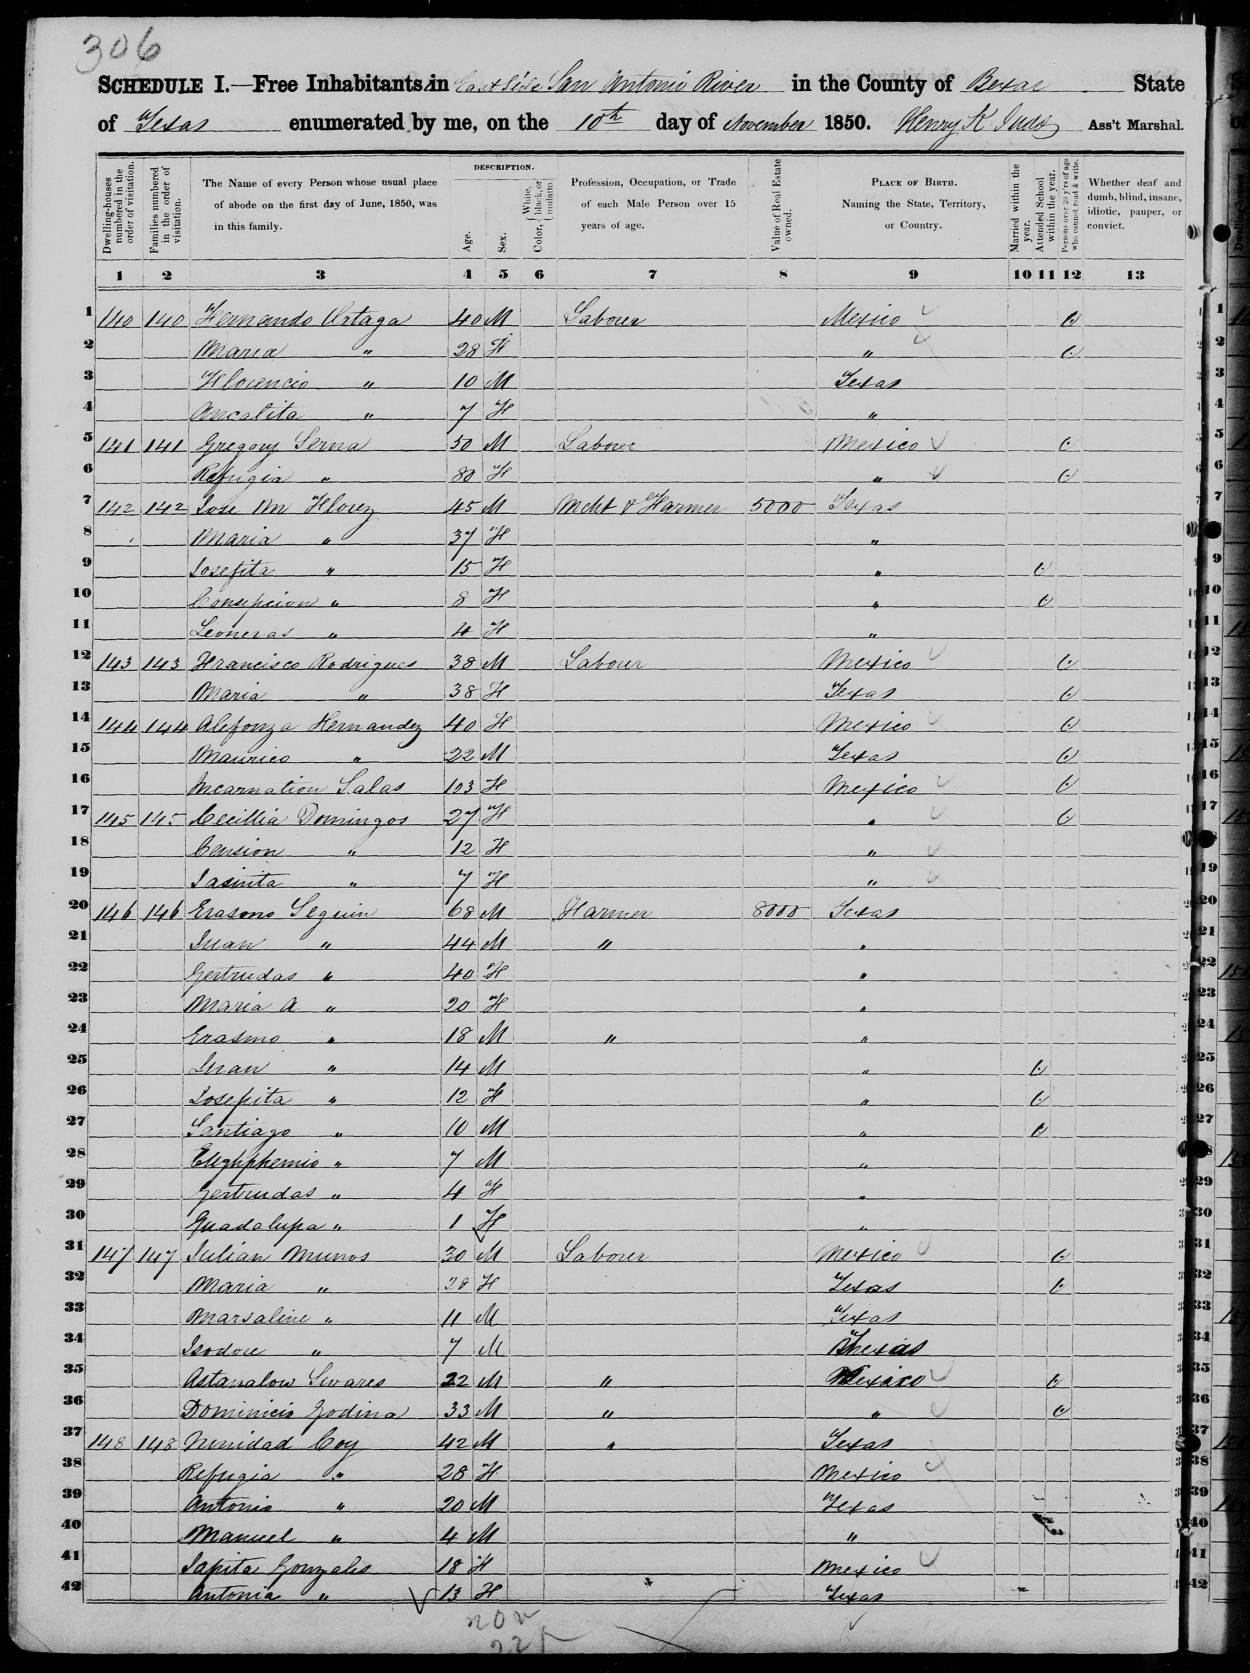 306
SCHEDULE I.—Free Inhabitants in East Side San Antonio River in the County of Bexar State
of Texas enumerated by me, on the 10th day of November 1850. Henry K Judd Ass't Marshal.
Dwelling-houses numbered in the order of visitation.
Families numbered in the order of visitation.
The Name of every Person whose usual place of abode on the first day of June, 1850, was in this family.
DESCRIPTION.
Age.
Sex.
Color, { White, black, or mulatto.
Profession, Occupation, or Trade of each Male Person over 15 years of age.
Value of Real Estate owned.
PLACE OF BIRTH. Naming the State, Territory, or Country.
Married within the year.
Attended School within the year.
Persons over 20 y'rs of age who cannot read & write.
Whether deaf and dumb, blind, insane, idiotic, pauper, or convict.
1 2 3 4 5 6 7 8 9 10 11 12 13
1 140 140 Fernando Ortaga 40 M Labourer Mexico 1
2 Maria " 28 F " 2
3 Florencio " 10 M Texas 3
4 Ancalita " 7 F " 4
5 141 141 Gregory Serna 50 M Labourer Mexico 5
6 Refugia " 80 F " 6
7 142 142 Jose M Florez 45 M Mcht & Farmer 5000 Texas 7
8 Maria " 37 F "
9 Josefita " 15 F " 9
10 Consepcion " 8 F " 10
11 Leoneras " 4 F " 11
12 143 143 Francisco Rodrigues 38 M Labour Mexico 12
13 Maria " 38 F Texas 13
14 144 144 Alefonza Hernandez 40 F Mexico 14
15 Maurico " 22 M Texas 15
16 Incarnation Salas 103 F Mexico 16
17 145 145 Cecillia Domingos 27 F " 17
18 Cension " 12 F "
19 Jasinta " 7 F " 19
20 146 146 Erasmo Seguin 68 M Farmer 8000 Texas 20
21 Juan " 44 M " " 21
22 Gertrudas " 40 F " 22
23 Maria A " 20 F " 23
24 Erasmo " 18 M " " 24
25 Juan " 14 M " 25
26 Josefita " 12 F " 26
27 Santiago " 10 M " 27
28 Eughphemio " 7 M "
29 Gertrudas " 4 F " 29
30 Guadalupa " 1 F " 30
31 147 147 Julian Munos 30 M Labourer Mexico 31
32 Maria " 28 F Texas 32
33 Marsaline " 11 M Texas 33
34 Isodore " 7 M Texas 34
35 Astanalow Swares 22 M " Mexico 35
36 Dominicio Godina 33 M " " 36
37 148 148 Trinidad Coy 42 M " Texas 37
38 Refugia " 28 F Mexico 38
39 Antonio " 20 M Texas 39
40 Manuel " 4 M " 40
41 Japita Gonzales 18 F Mexico 41
42 Antonia " 13 F Texas 42